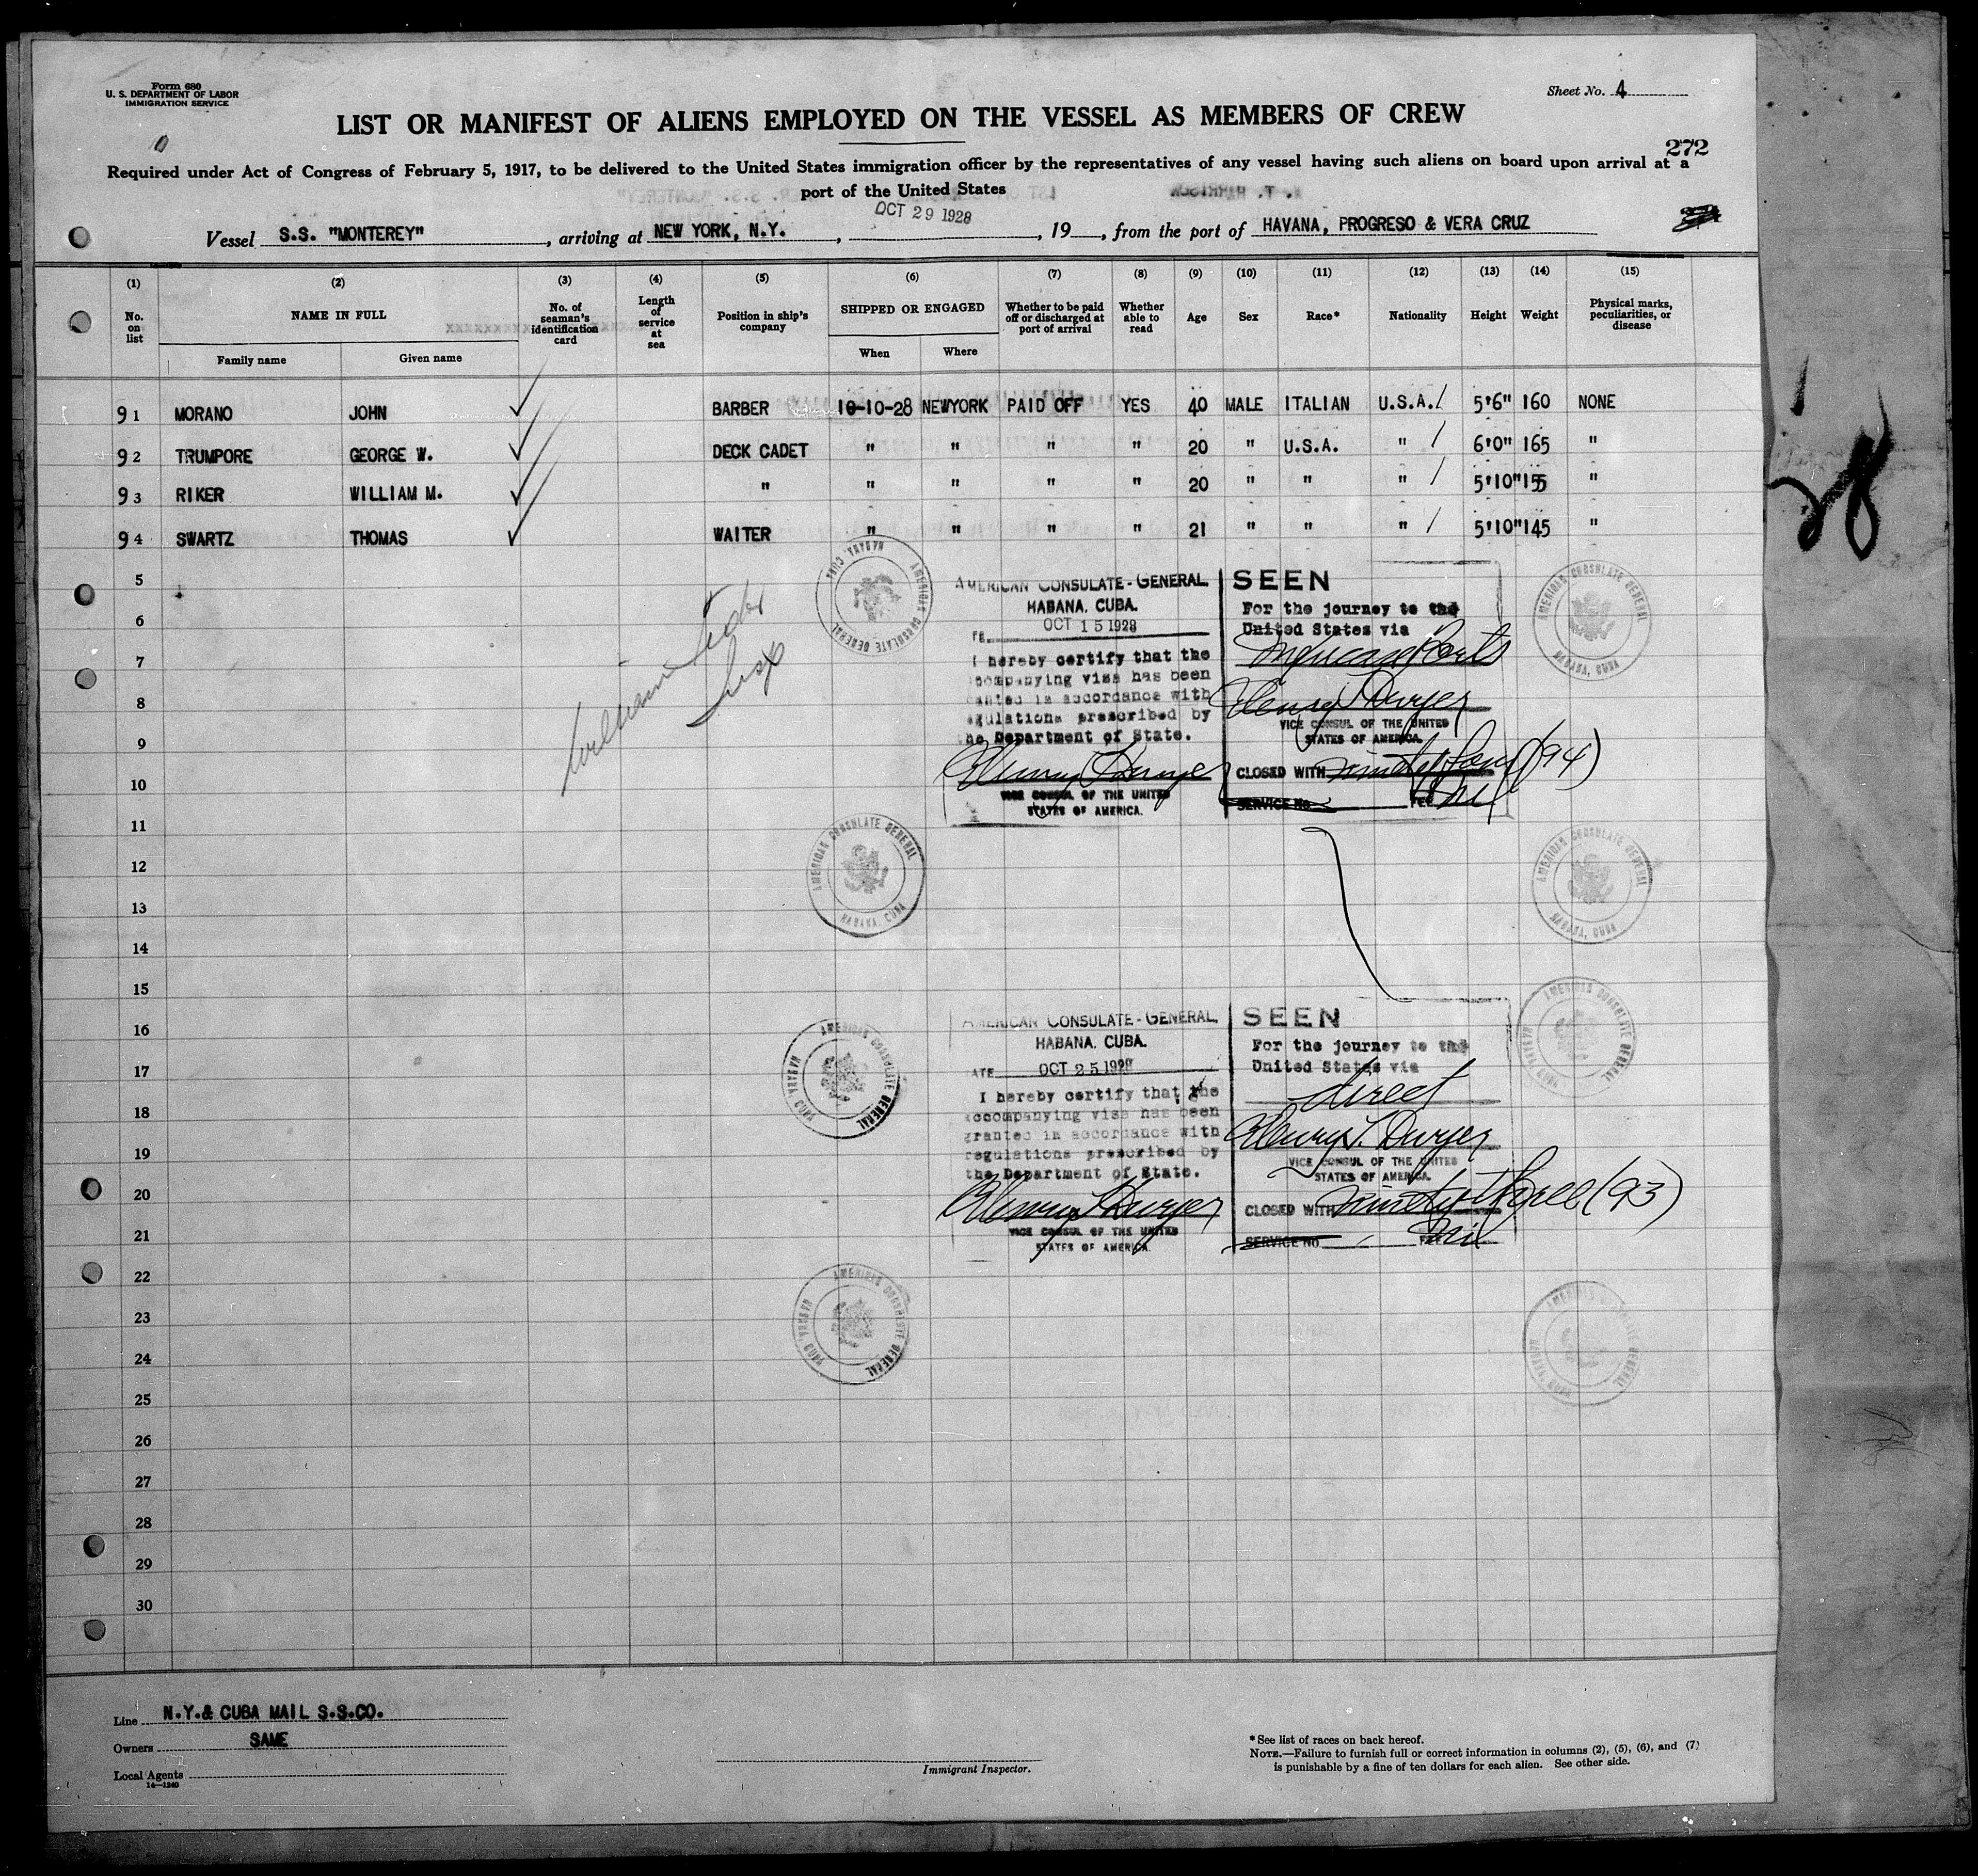 Form 680
U. S. DEPARTMENT OF LABOR
IMMIGRATION SERVICE
Sheet No. 4
LIST OR MANIFEST OF ALIENS EMPLOYED ON THE VESSEL AS MEMBERS OF CREW
272
Required under Act of Congress of February 5, 1917, to be delivered to the United States immigration officer by the representatives of any vessel having such aliens on board upon arrival at a
port of the United States
OCT 29 1928
Vessel S.S. "MONTEREY", arriving at NEW YORK, N.Y., 19, from the port of HAVANA, PROGRESO & VERA CRUZ
(1) (2) (3) (4) (5) (6) (7) (8) (9) (10) (11) (12) (13) (14) (15)
No. on list NAME IN FULL No. of seaman's identification card Length of service at sea Position in ship's company SHIPPED OR ENGAGED Whether to be paid off or discharged at port of arrival Whether able to read Age Sex Race* Nationality Height Weight Physical marks, peculiarities, or disease
Family name Given name When Where
91 MORANO JOHN BARBER 10-10-28 NEWYORK PAID OFF YES 40 MALE ITALIAN U.S.A. 5'6" 160 NONE
92 TRUMPORE GEORGE W. DECK CADET " " " " 20 " U.S.A. " 6'0" 165 "
93 RIKER WILLIAM M. " " " " " 20 " " " 5'10" 155 "
94 SWARTZ THOMAS WAITER " " " " 21 " " " 5'10" 145 "
5
6
7
8
9
10
11
12
13
14
15
16
17
18
19
20
21
22
23
24
25
26
27
28
29
30
AMERICAN CONSULATE-GENERAL
HABANA, CUBA.
OCT 15 1928
I hereby certify that the
companying visa has been
anted in accordance with
egulations prescribed by
the Department of State.
Henry T. Dwyer
VICE CONSUL OF THE UNITED
STATES OF AMERICA.
SEEN
For the journey to the
United States via
Mexican Ports
Henry T. Dwyer
VICE CONSUL OF THE UNITED
STATES OF AMERICA.
CLOSED WITH ninety four (94)
SERVICE No. FEE Nil
AMERICAN CONSULATE GENERAL
HABANA, CUBA
AMERICAN CONSULATE GENERAL
HABANA, CUBA
AMERICAN CONSULATE GENERAL
HABANA, CUBA
AMERICAN CONSULATE GENERAL
HABANA, CUBA
AMERICAN CONSULATE-GENERAL
HABANA, CUBA.
ATE OCT 25 1928
I hereby certify that the
accompanying visa has been
granted in accordance with
regulations prescribed by
the Department of State.
Henry T. Dwyer
VICE CONSUL OF THE UNITED
STATES OF AMERICA.
SEEN
For the journey to the
United States via
direct
Henry T. Dwyer
VICE CONSUL OF THE UNITED
STATES OF AMERICA.
CLOSED WITH ninety three (93)
SERVICE No FEE Nil
AMERICAN CONSULATE GENERAL
HABANA, CUBA
AMERICAN CONSULATE GENERAL
HABANA, CUBA
AMERICAN CONSULATE GENERAL
HABANA, CUBA
AMERICAN CONSULATE GENERAL
HABANA, CUBA
Line N.Y.& CUBA MAIL S.S.CO.
Owners SAME
Local Agents
14—1240
Immigrant Inspector.
*See list of races on back hereof.
NOTE.—Failure to furnish full or correct information in columns (2), (5), (6), and (7)
is punishable by a fine of ten dollars for each alien. See other side.